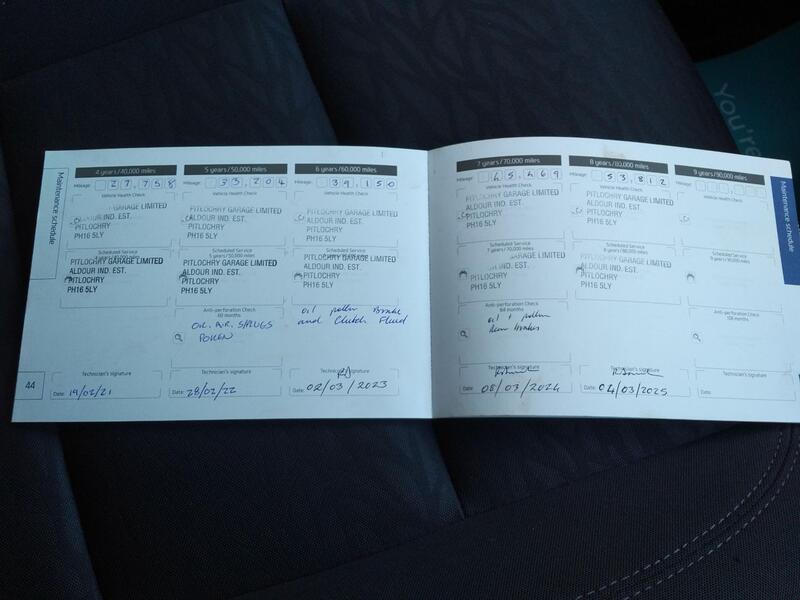 Maintenance schedule
4 years/40,000 miles
Mileage: 27,758
Vehicle Health Check
PITLOCHRY GARAGE LIMITED
ALDOUR IND. EST.
PITLOCHRY
PH16 5LY
Scheduled Service
PITLOCHRY GARAGE LIMITED
ALDOUR IND. EST.
PITLOCHRY
PH16 5LY
Technician's signature
Date: 19/02/21
44
5 years/50,000 miles
Mileage: 33,204
Vehicle Health Check
PITLOCHRY GARAGE LIMITED
ALDOUR IND. EST.
PITLOCHRY
PH16 5LY
Scheduled Service
5 years/50,000 miles
PITLOCHRY GARAGE LIMITED
ALDOUR IND. EST.
PITLOCHRY
PH16 5LY
Anti-perforation Check
60 months
OIL. AIR. S/PLUGS
POLLEN
Technician's signature
Date: 28/02/22
6 years/60,000 miles
Mileage: 39,150
Vehicle Health Check
PITLOCHRY GARAGE LIMITED
ALDOUR IND. EST.
PITLOCHRY
PH16 5LY
Scheduled Service
PITLOCHRY GARAGE LIMITED
ALDOUR IND. EST.
PITLOCHRY
PH16 5LY
oil pollen Brake
and Clutch Fluid
Technician's signature
Date: 02/03/2023
7 years/70,000 miles
Mileage: 45,469
Vehicle Health Check
PITLOCHRY GARAGE LIMITED
ALDOUR IND. EST.
PITLOCHRY
PH16 5LY
Scheduled Service
7 years/70,000 miles
GARAGE LIMITED
ALDOUR IND. EST.
PITLOCHRY
PH16 5LY
Anti-perforation Check
84 months
oil + pollen
Rear Brakes
Technician's signature
Date: 08/03/2024
8 years/80,000 miles
Mileage: 53,812
Vehicle Health Check
PITLOCHRY GARAGE LIMITED
ALDOUR IND. EST.
PITLOCHRY
PH16 5LY
Scheduled Service
8 years/80,000 miles
PITLOCHRY GARAGE LIMITED
ALDOUR IND. EST.
PITLOCHRY
PH16 5LY
Technician's signature
Date: 04/03/2025
9 years/90,000 miles
Mileage:
Vehicle Health Check
Scheduled Service
9 years/90,000 miles
Anti-perforation Check
108 months
Technician's signature
Date:
Maintenance schedule
You're